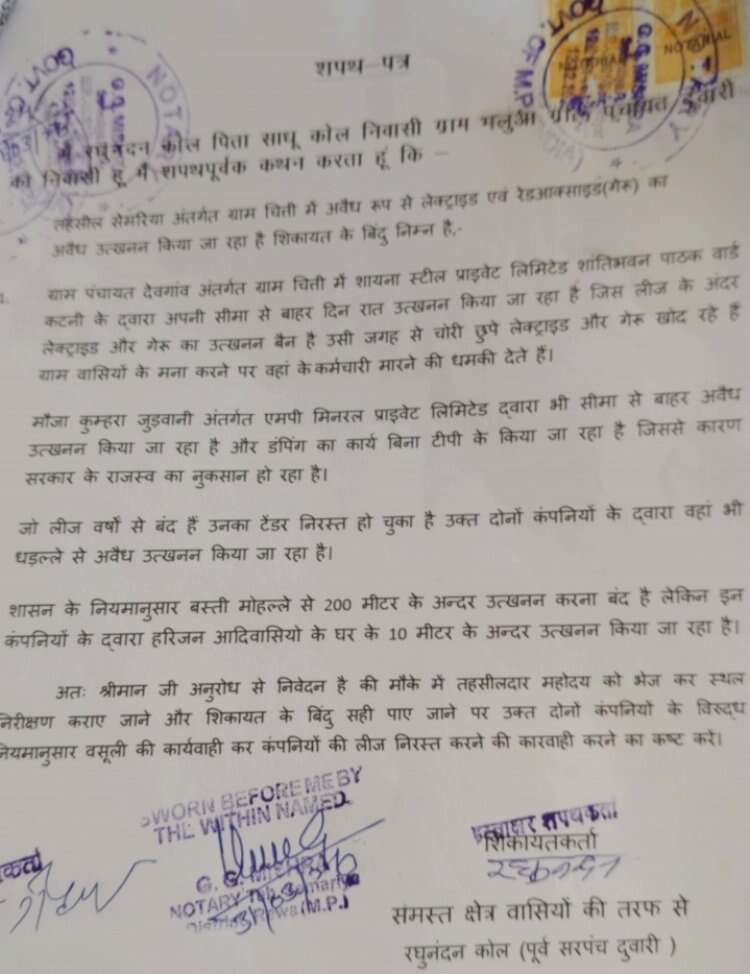 शपथ-पत्र
मैं रघुनंदन कोल पिता साधू कोल निवासी ग्राम भलुआ ग्राम पंचायत दुवारी
का निवासी हू मैं शपथपूर्वक कथन करता हूं कि –
तहसील सेमरिया अंतर्गत ग्राम चित्ती में अवैध रूप से लेक्ट्राइड एवं रेडआक्साइड(गेरू) का
अवैध उत्खनन किया जा रहा है शिकायत के बिंदु निम्न है,-
ग्राम पंचायत देवगांव अंतर्गत ग्राम चित्ती में शायना स्टील प्राइवेट लिमिटेड शांतिभवन पाठक वार्ड
कटनी के द्वारा अपनी सीमा से बाहर दिन रात उत्खनन किया जा रहा है जिस लीज के अंदर
लेक्ट्राइड और गेरू का उत्खनन बैन है उसी जगह से चोरी छुपे लेक्ट्राइड और गेरू खोद रहे हैं
ग्राम वासियों के मना करने पर वहां के कर्मचारी मारने की धमकी देते हैं।
मौजा कुम्हरा जुड़वानी अंतर्गत एमपी मिनरल प्राइवेट लिमिटेड द्वारा भी सीमा से बाहर अवैध
उत्खनन किया जा रहा है और डंपिंग का कार्य बिना टीपी के किया जा रहा है जिससे कारण
सरकार के राजस्व का नुकसान हो रहा है।
जो लीज वर्षों से बंद हैं उनका टेंडर निरस्त हो चुका है उक्त दोनों कंपनियों के द्वारा वहां भी
धड़ल्ले से अवैध उत्खनन किया जा रहा है।
शासन के नियमानुसार बस्ती मोहल्ले से 200 मीटर के अन्दर उत्खनन करना बंद है लेकिन इन
कंपनियों के द्वारा हरिजन आदिवासियो के घर के 10 मीटर के अन्दर उत्खनन किया जा रहा है।
अतः श्रीमान जी अनुरोध से निवेदन है की मौके में तहसीलदार महोदय को भेज कर स्थल
निरीक्षण कराए जाने और शिकायत के बिंदु सही पाए जाने पर उक्त दोनों कंपनियों के विरुद्ध
नियमानुसार वसूली की कार्यवाही कर कंपनियों की लीज निरस्त करने की कारवाही करने का कष्ट करें।
SWORN BEFORE ME BY
THE WITHIN NAMED
G. G. MISHRA
NOTARY Teh. Semariya
District Rewa (M.P.)
हस्ताक्षर शपथकर्ता
शिकायतकर्ता
रघुनन्दन
संमस्त क्षेत्र वासियों की तरफ से
रघुनंदन कोल (पूर्व सरपंच दुवारी )